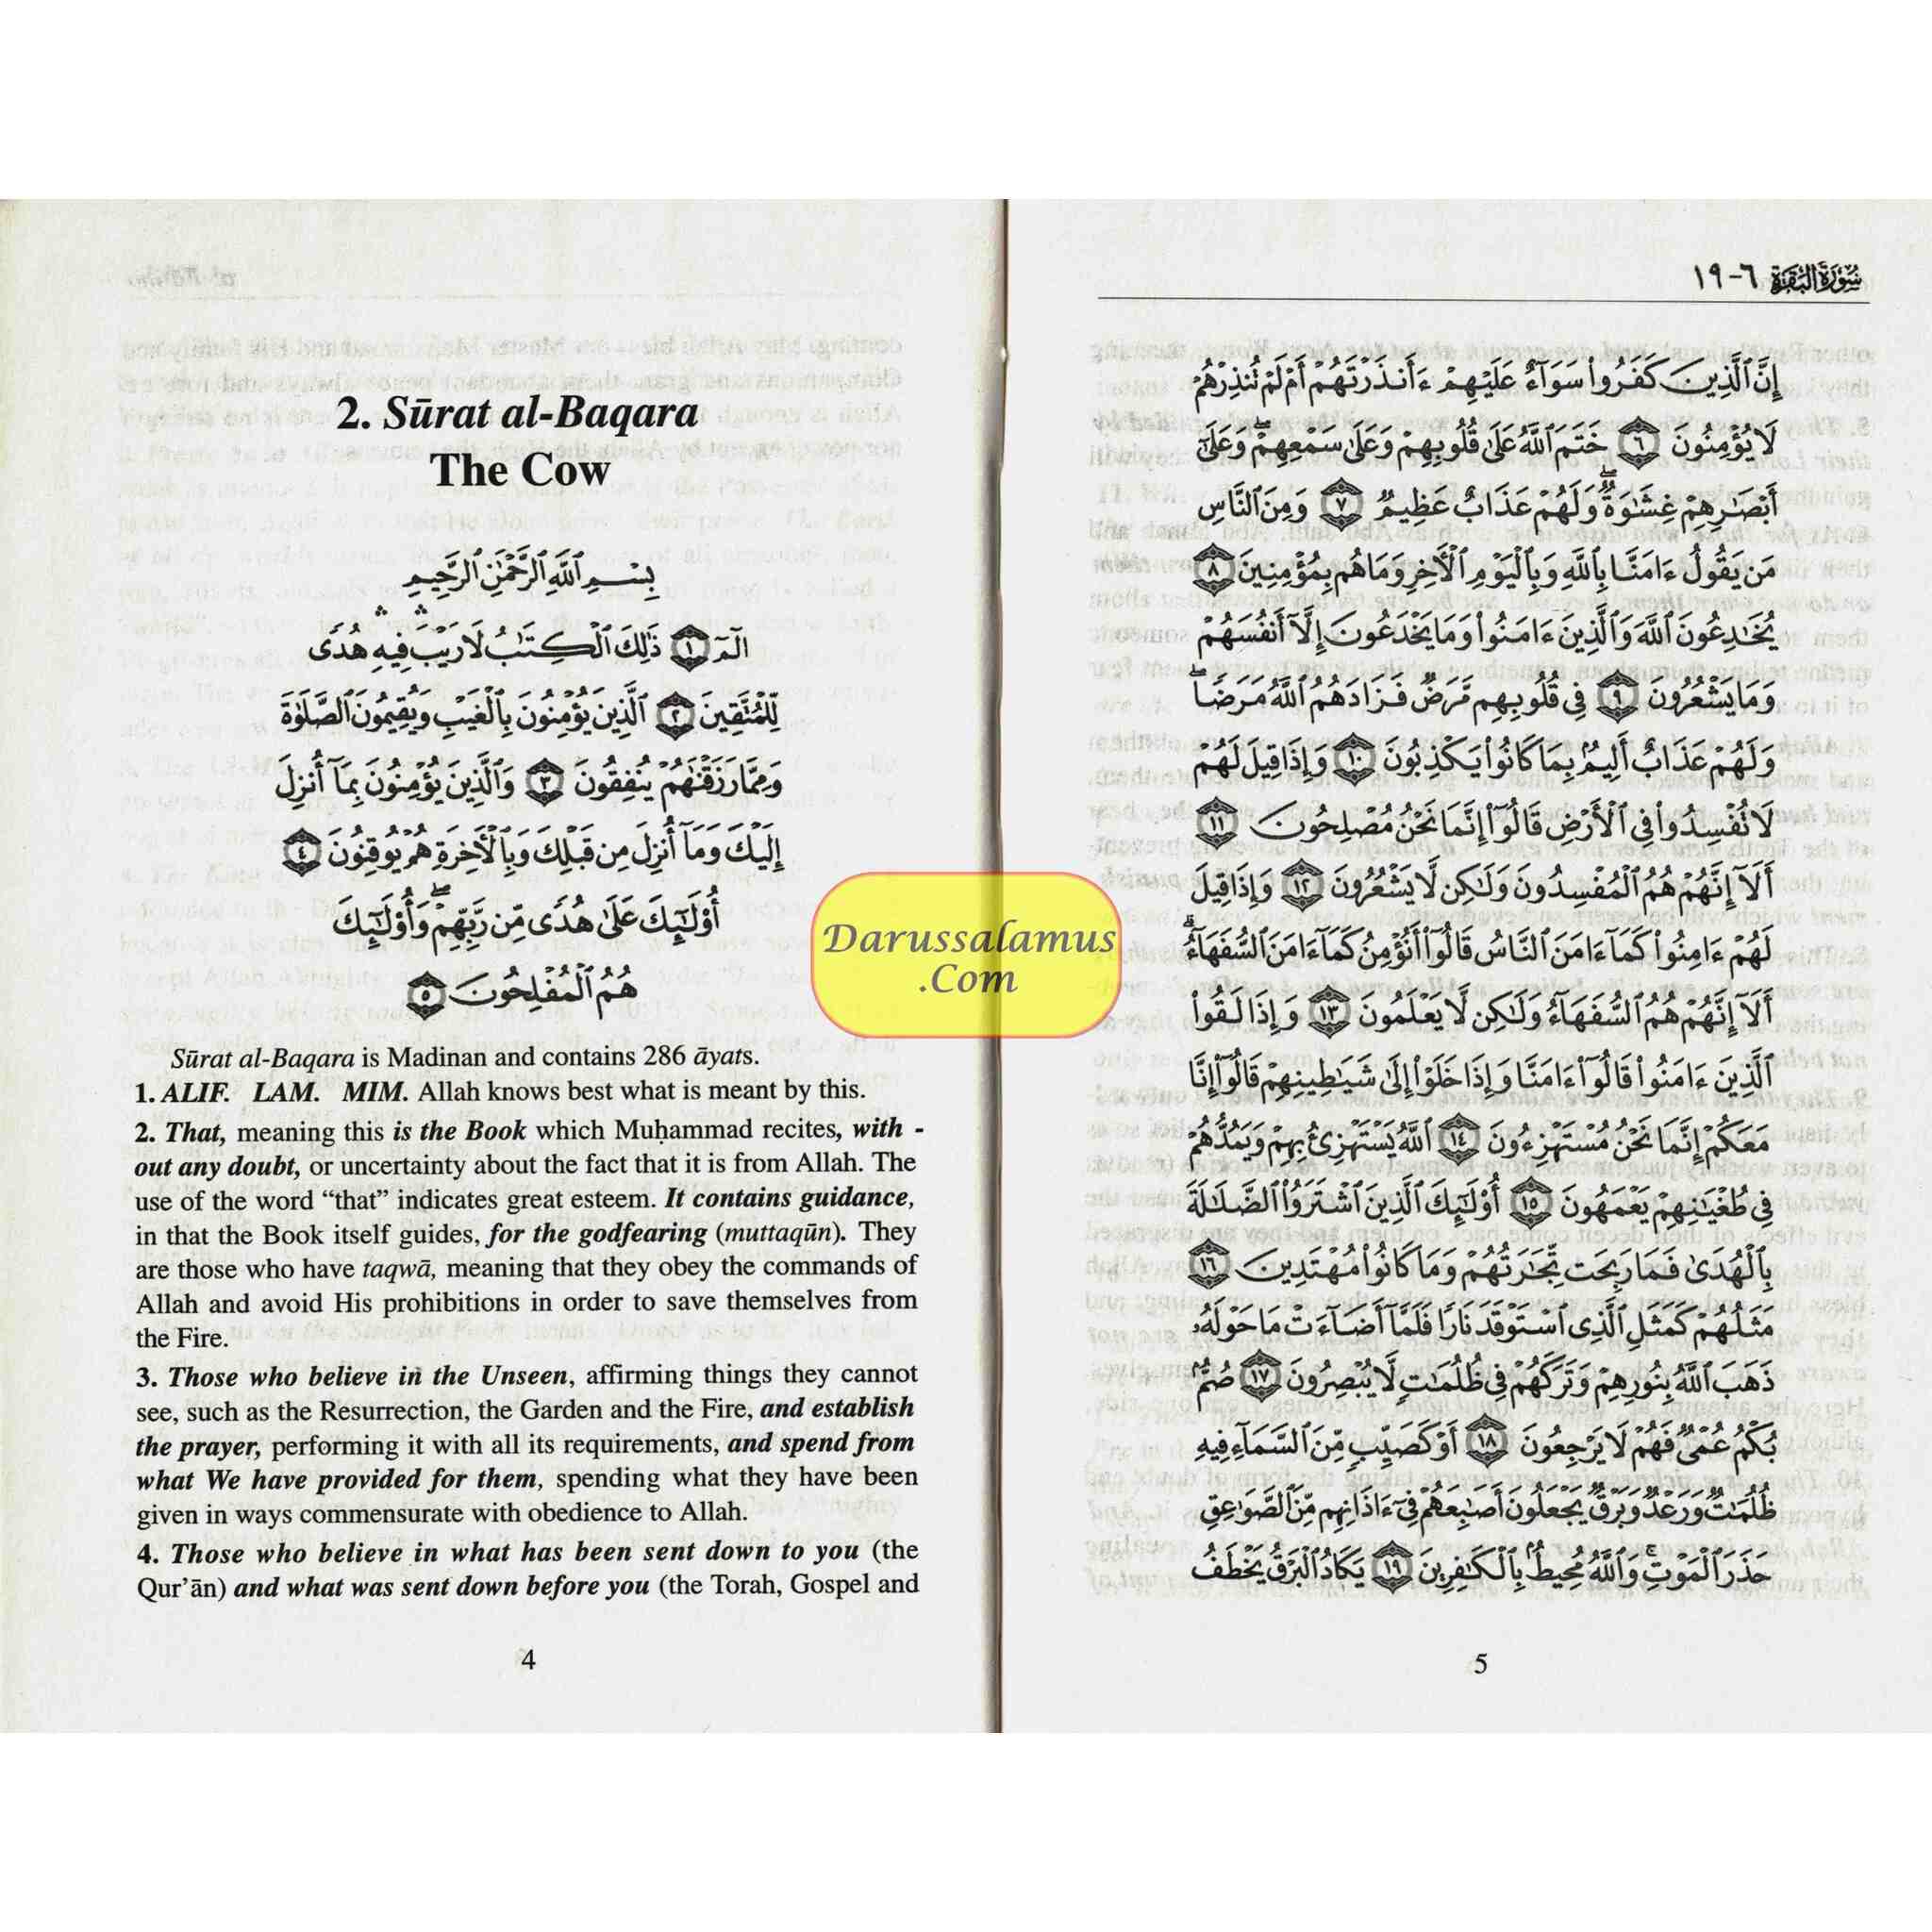 2. Sūrat al-Baqara
The Cow
بِسْمِ ٱللَّهِ ٱلرَّحْمَٰنِ ٱلرَّحِيمِ
الٓمٓ ١ ذَٰلِكَ ٱلْكِتَٰبُ لَا رَيْبَ ۛ فِيهِ ۛ هُدًى
لِّلْمُتَّقِينَ ٢ ٱلَّذِينَ يُؤْمِنُونَ بِٱلْغَيْبِ وَيُقِيمُونَ ٱلصَّلَوٰةَ
وَمِمَّا رَزَقْنَٰهُمْ يُنفِقُونَ ٣ وَٱلَّذِينَ يُؤْمِنُونَ بِمَآ أُنزِلَ
إِلَيْكَ وَمَآ أُنزِلَ مِن قَبْلِكَ وَبِٱلْأَخِرَةِ هُمْ يُوقِنُونَ ٤
أُو۟لَٰٓئِكَ عَلَىٰ هُدًى مِّن رَّبِّهِمْ ۖ وَأُو۟لَٰٓئِكَ
هُمُ ٱلْمُفْلِحُونَ ٥
Sūrat al-Baqara is Madinan and contains 286 āyats.
1. ALIF. LAM. MIM. Allah knows best what is meant by this.
2. That, meaning this is the Book which Muḥammad recites, with -
out any doubt, or uncertainty about the fact that it is from Allah. The
use of the word “that” indicates great esteem. It contains guidance,
in that the Book itself guides, for the godfearing (muttaqūn). They
are those who have taqwā, meaning that they obey the commands of
Allah and avoid His prohibitions in order to save themselves from
the Fire.
3. Those who believe in the Unseen, affirming things they cannot
see, such as the Resurrection, the Garden and the Fire, and establish
the prayer, performing it with all its requirements, and spend from
what We have provided for them, spending what they have been
given in ways commensurate with obedience to Allah.
4. Those who believe in what has been sent down to you (the
Qur’ān) and what was sent down before you (the Torah, Gospel and
4
Darussalamus
.Com
سُورَةُ البَقَرَة ٦-١٩
إِنَّ ٱلَّذِينَ كَفَرُوا۟ سَوَآءٌ عَلَيْهِمْ ءَأَنذَرْتَهُمْ أَمْ لَمْ تُنذِرْهُمْ
لَا يُؤْمِنُونَ ٦ خَتَمَ ٱللَّهُ عَلَىٰ قُلُوبِهِمْ وَعَلَىٰ سَمْعِهِمْ ۖ وَعَلَىٰٓ
أَبْصَٰرِهِمْ غِشَٰوَةٌ ۖ وَلَهُمْ عَذَابٌ عَظِيمٌ ٧ وَمِنَ ٱلنَّاسِ
مَن يَقُولُ ءَامَنَّا بِٱللَّهِ وَبِٱلْيَوْمِ ٱلْأَخِرِ وَمَا هُم بِمُؤْمِنِينَ ٨
يُخَٰدِعُونَ ٱللَّهَ وَٱلَّذِينَ ءَامَنُوا۟ وَمَا يَخْدَعُونَ إِلَّآ أَنفُسَهُمْ
وَمَا يَشْعُرُونَ ٩ فِى قُلُوبِهِم مَّرَضٌ فَزَادَهُمُ ٱللَّهُ مَرَضًا ۖ
وَلَهُمْ عَذَابٌ أَلِيمٌۢ بِمَا كَانُوا۟ يَكْذِبُونَ ١٠ وَإِذَا قِيلَ لَهُمْ
لَا تُفْسِدُوا۟ فِى ٱلْأَرْضِ قَالُوٓا۟ إِنَّمَا نَحْنُ مُصْلِحُونَ ١١
أَلَآ إِنَّهُمْ هُمُ ٱلْمُفْسِدُونَ وَلَٰكِن لَّا يَشْعُرُونَ ١٢ وَإِذَا قِيلَ
لَهُمْ ءَامِنُوا۟ كَمَآ ءَامَنَ ٱلنَّاسُ قَالُوٓا۟ أَنُؤْمِنُ كَمَآ ءَامَنَ ٱلسُّفَهَآءُ ۗ
أَلَآ إِنَّهُمْ هُمُ ٱلسُّفَهَآءُ وَلَٰكِن لَّا يَعْلَمُونَ ١٣ وَإِذَا لَقُوا۟
ٱلَّذِينَ ءَامَنُوا۟ قَالُوٓا۟ ءَامَنَّا وَإِذَا خَلَوْا۟ إِلَىٰ شَيَٰطِينِهِمْ قَالُوٓا۟ إِنَّا
مَعَكُمْ إِنَّمَا نَحْنُ مُسْتَهْزِءُونَ ١٤ ٱللَّهُ يَسْتَهْزِئُ بِهِمْ وَيَمُدُّهُمْ
فِى طُغْيَٰنِهِمْ يَعْمَهُونَ ١٥ أُو۟لَٰٓئِكَ ٱلَّذِينَ ٱشْتَرَوُا۟ ٱلضَّلَٰلَةَ
بِٱلْهُدَىٰ فَمَا رَبِحَت تِّجَٰرَتُهُمْ وَمَا كَانُوا۟ مُهْتَدِينَ ١٦
مَثَلُهُمْ كَمَثَلِ ٱلَّذِى ٱسْتَوْقَدَ نَارًا فَلَمَّآ أَضَآءَتْ مَا حَوْلَهُۥ
ذَهَبَ ٱللَّهُ بِنُورِهِمْ وَتَرَكَهُمْ فِى ظُلُمَٰتٍ لَّا يُبْصِرُونَ ١٧ صُمٌّۢ
بُكْمٌ عُمْىٌ فَهُمْ لَا يَرْجِعُونَ ١٨ أَوْ كَصَيِّبٍ مِّنَ ٱلسَّمَآءِ فِيهِ
ظُلُمَٰتٌ وَرَعْدٌ وَبَرْقٌ يَجْعَلُونَ أَصَٰبِعَهُمْ فِىٓ ءَاذَانِهِم مِّنَ ٱلصَّوَٰعِقِ
حَذَرَ ٱلْمَوْتِ ۚ وَٱللَّهُ مُحِيطٌۢ بِٱلْكَٰفِرِينَ ١٩ يَكَادُ ٱلْبَرْقُ يَخْطَفُ
5